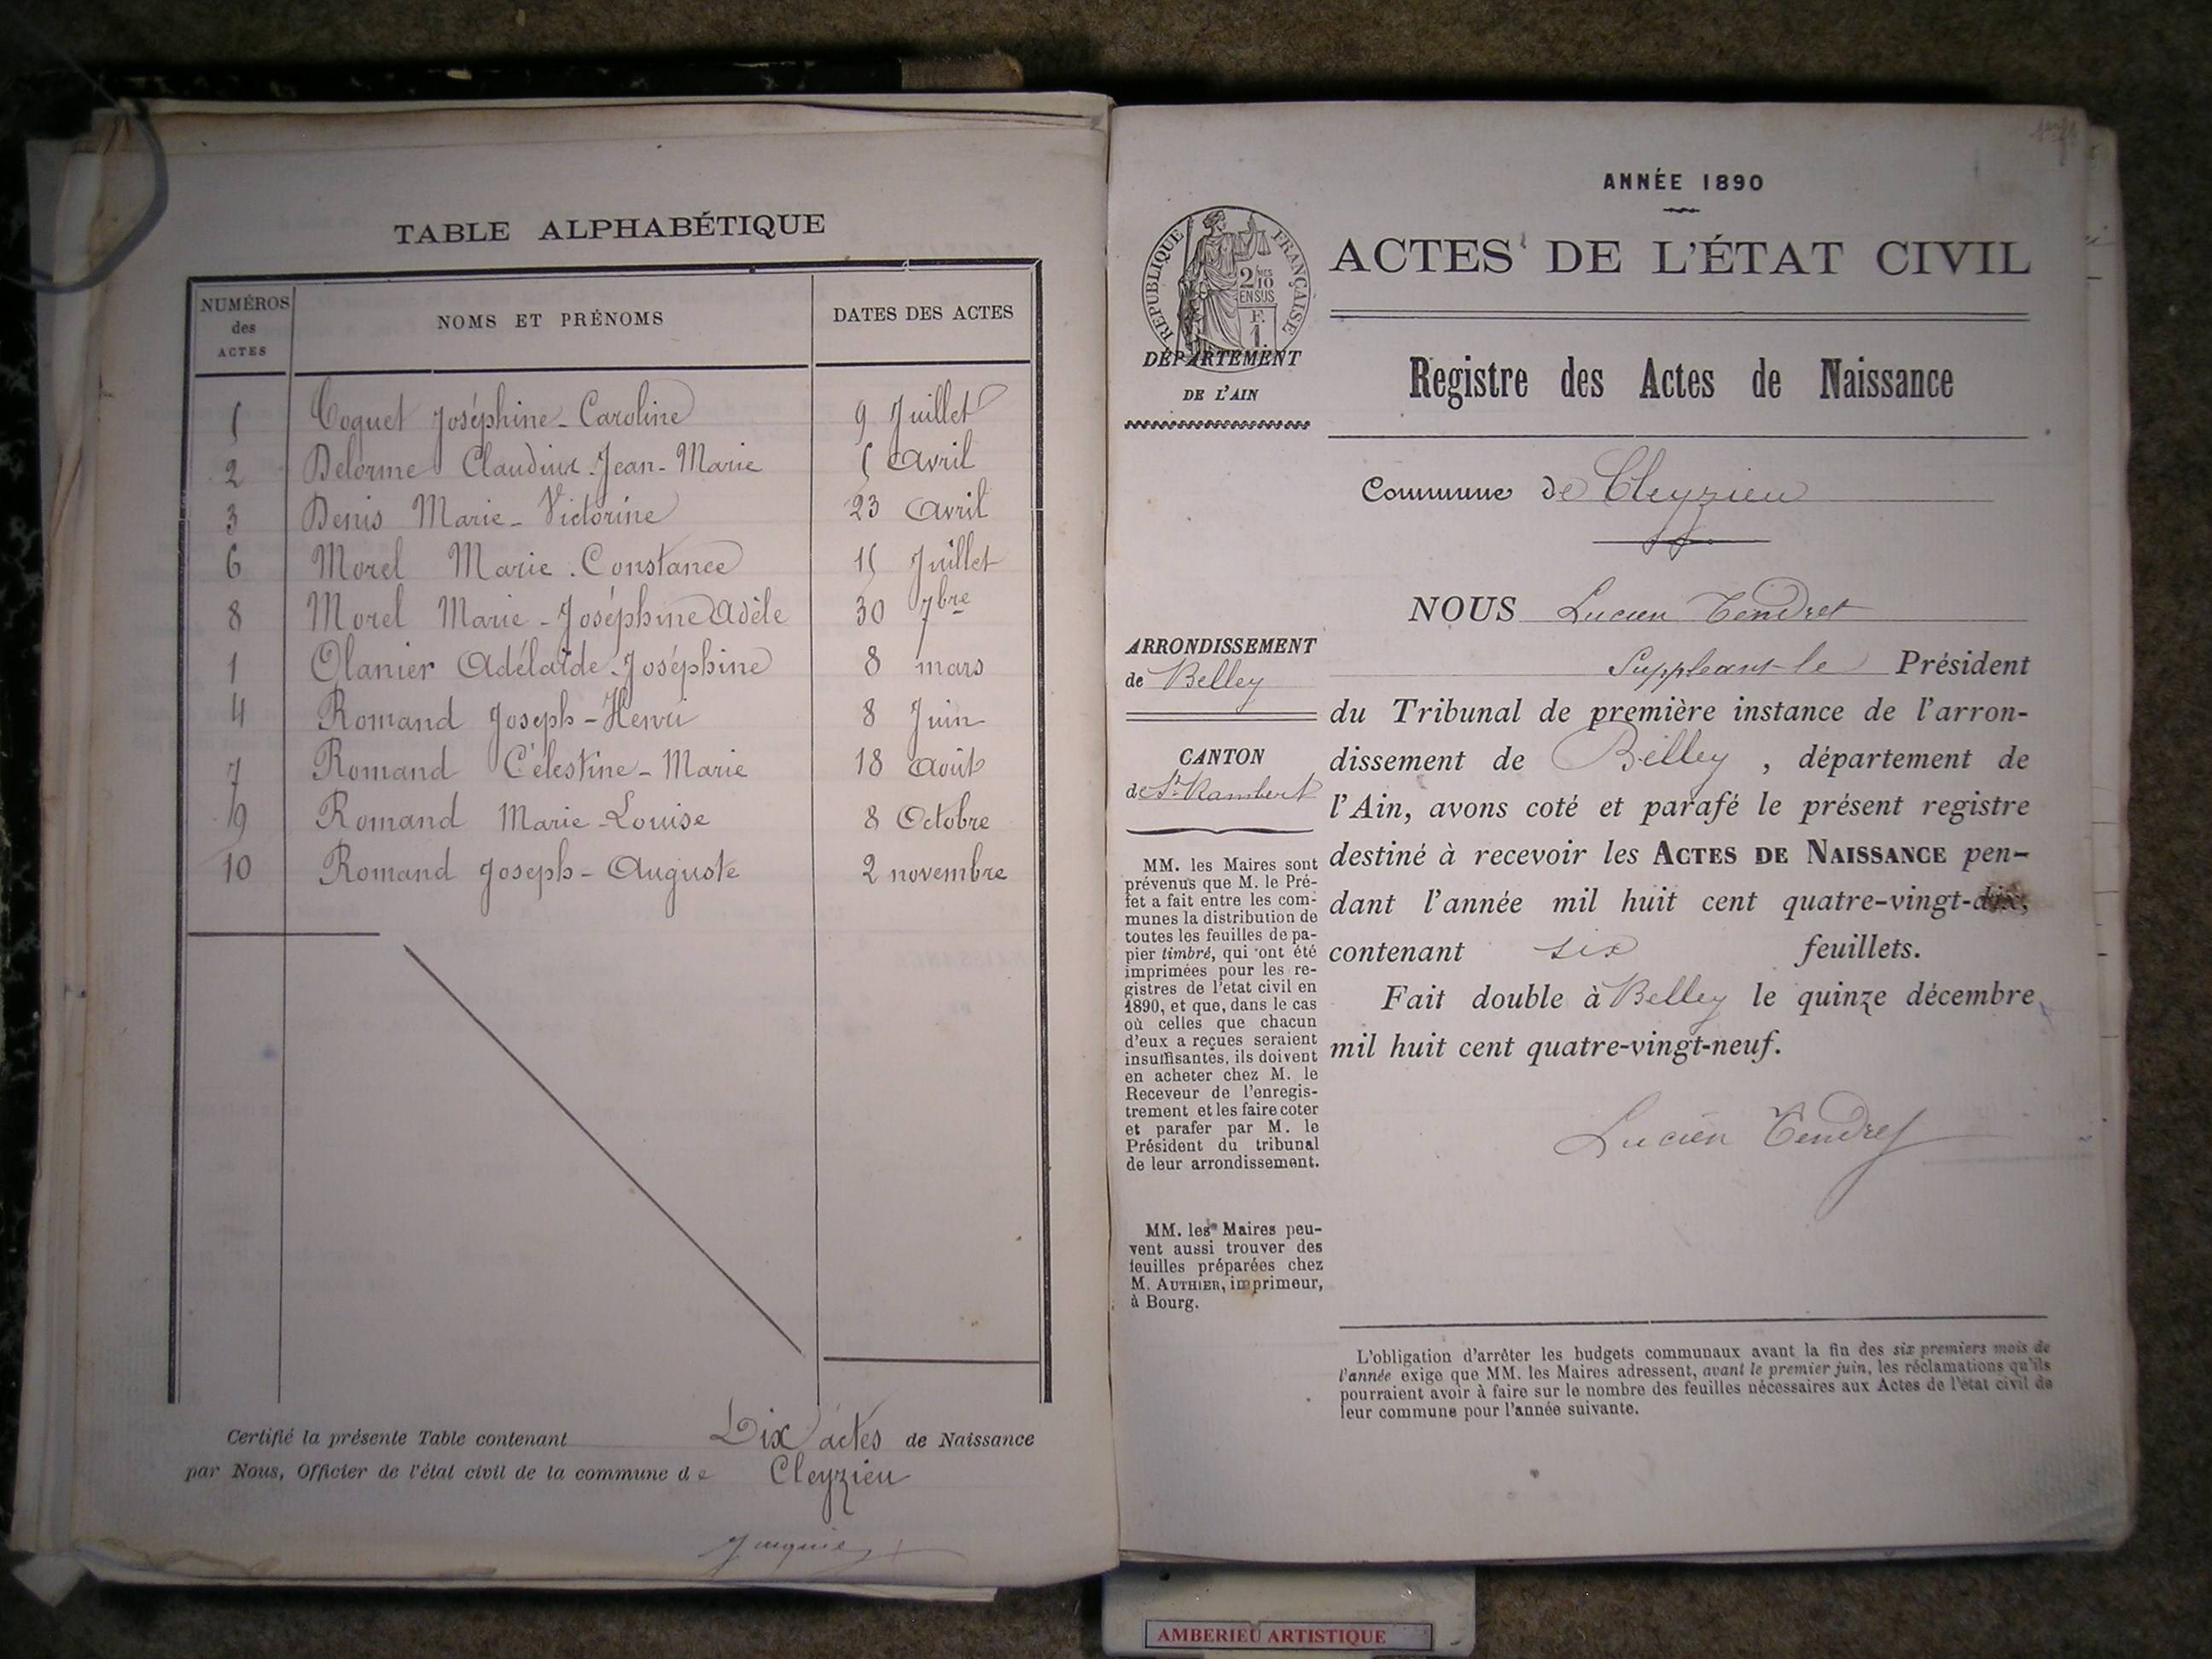 TABLE ALPHABÉTIQUE
NUMÉROS des ACTES NOMS ET PRÉNOMS DATES DES ACTES
5 Coquet Joséphine-Caroline 9 Juillet
2 Delorme Claudius-Jean-Marie 5 avril
3 Denis Marie-Victorine 23 avril
6 Morel Marie-Constance 15 Juillet
8 Morel Marie-Joséphine Adèle 30 7bre
1 Olanier Adélaïde-Joséphine 8 mars
4 Romand Joseph-Henri 8 Juin
7 Romand Célestine-Marie 18 août
9 Romand Marie-Louise 8 Octobre
10 Romand Joseph-Auguste 2 novembre
Certifié la présente Table contenant Dix actes de Naissance
par Nous, Officier de l'état civil de la commune de Cleyzieu
ANNÉE 1890
RÉPUBLIQUE FRANÇAISE
2 10MES
EN SUS
F.
1.
DÉPARTEMENT
DE L'AIN
ACTES DE L'ÉTAT CIVIL
Registre des Actes de Naissance
Commune de Cleyzieu
ARRONDISSEMENT
de Belley
CANTON
de St. Rambert
MM. les Maires sont
prévenus que M. le Pré-
fet a fait entre les com-
munes la distribution de
toutes les feuilles de pa-
pier timbré, qui ont été
imprimées pour les re-
gistres de l'etat civil en
1890, et que, dans le cas
où celles que chacun
d'eux a reçues seraient
insuffisantes, ils doivent
en acheter chez M. le
Receveur de l'enregis-
trement et les faire coter
et parafer par M. le
Président du tribunal
de leur arrondissement.
MM. les Maires peu-
vent aussi trouver des
feuilles préparées chez
M. AUTHIER, imprimeur,
à Bourg.
NOUS Lucien Tendret
Suppléant le Président
du Tribunal de première instance de l'arron-
dissement de Belley, département de
l'Ain, avons coté et parafé le présent registre
destiné à recevoir les ACTES DE NAISSANCE pen-
dant l'année mil huit cent quatre-vingt-dix,
contenant six feuillets.
Fait double à Belley le quinze décembre
mil huit cent quatre-vingt-neuf.
Lucien Tendret
L'obligation d'arrêter les budgets communaux avant la fin des six premiers mois de
l'année exige que MM. les Maires adressent, avant le premier juin, les réclamations qu'ils
pourraient avoir à faire sur le nombre des feuilles nécessaires aux Actes de l'état civil de
leur commune pour l'année suivante.
AMBERIEU ARTISTIQUE